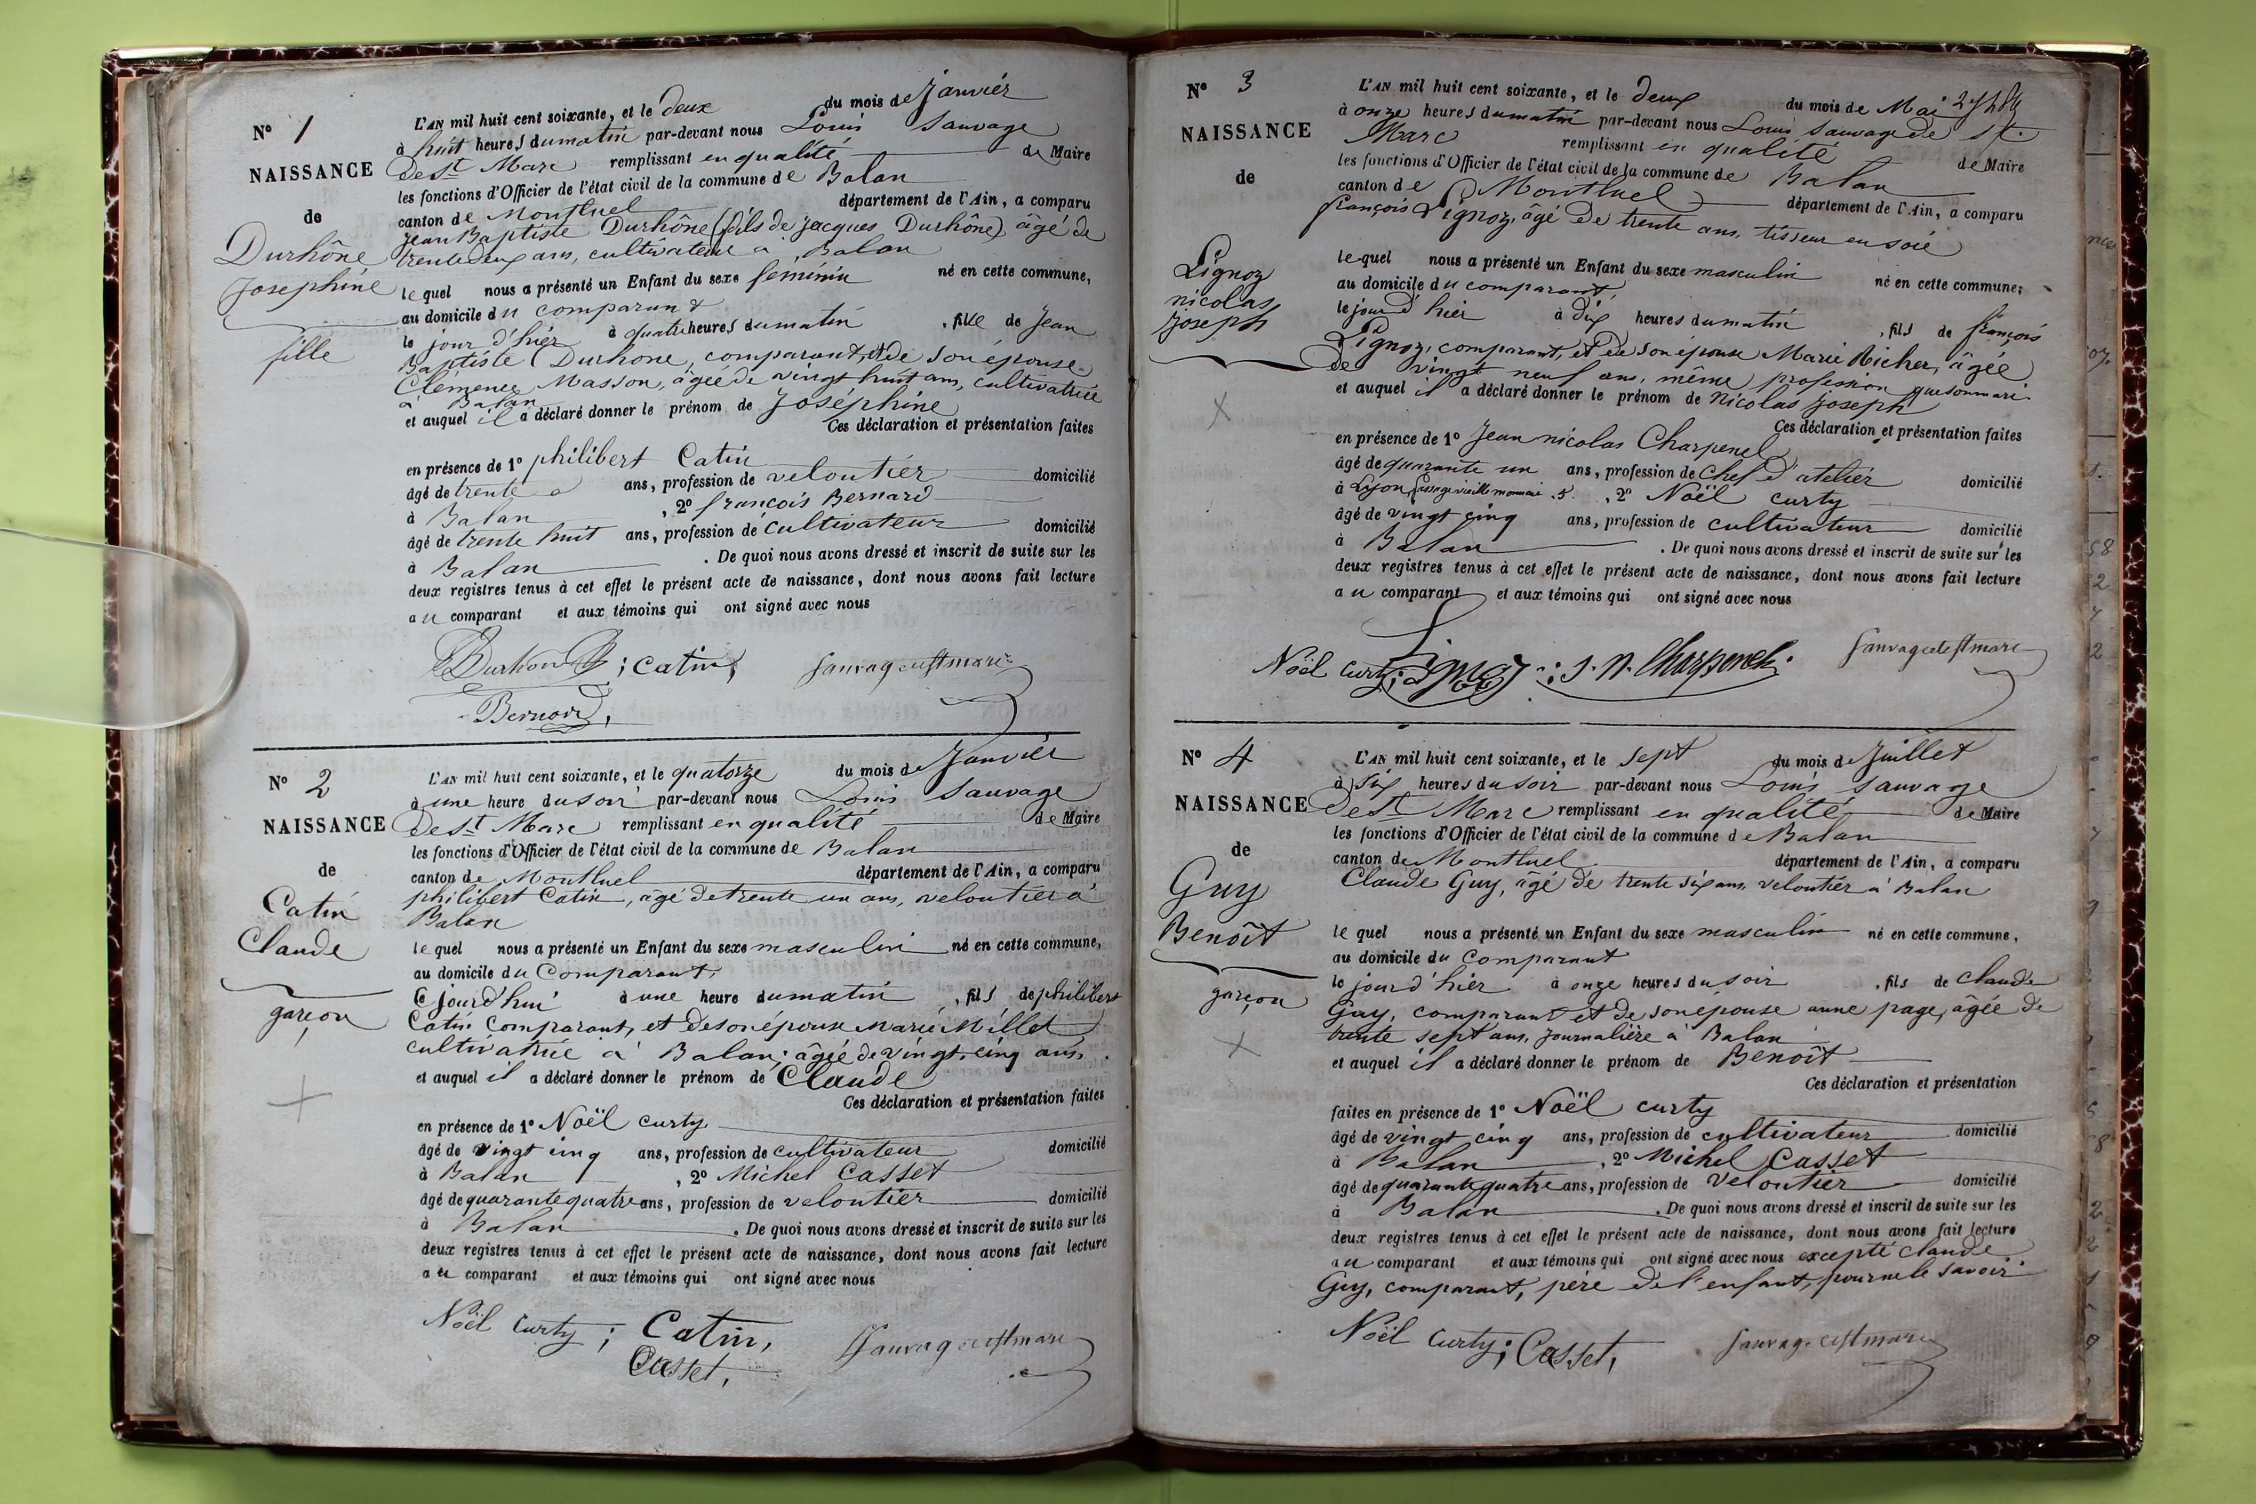 N° 1
NAISSANCE
de
Durhône
Joséphine
fille
L'AN mil huit cent soixante, et le deux du mois de Janvier
à huit heures du matin par-devant nous Louis Sauvage
de St Marc remplissant en qualité de Maire
les fonctions d'Officier de l'état civil de la commune de Balan
canton de Montluel département de l'Ain, a comparu
Jean Baptiste Durhône (fils de Jacques Durhône) âgé de
trente deux ans, cultivateur à Balan
lequel nous a présenté un Enfant du sexe féminin né en cette commune,
au domicile du comparant
le jour d'hier à quatre heures du matin, fille de Jean
Baptiste Durhone, comparant, et de son épouse
Clémence Masson, âgée de vingt huit ans, cultivatrice
à Balan
et auquel il a déclaré donner le prénom de Joséphine
Ces déclaration et présentation faites
en présence de 1° philibert Catin
âgé de trente ans, profession de veloutier domicilié
à Balan, 2° françois Bernard
âgé de trente huit ans, profession de cultivateur domicilié
à Balan. De quoi nous avons dressé et inscrit de suite sur les
deux registres tenus à cet effet le présent acte de naissance, dont nous avons fait lecture
au comparant et aux témoins qui ont signé avec nous
Durhone; Catin, Sauvage de St marc
Bernard,
N° 2
NAISSANCE
de
Catin
Claude
garçon
L'AN mil huit cent soixante, et le quatorze du mois de Janvier
à une heure du soir par-devant nous Louis Sauvage
de St Marc remplissant en qualité de Maire
les fonctions d'Officier de l'état civil de la commune de Balan
canton de Montluel département de l'Ain, a comparu
philibert Catin, âgé de trente un ans, veloutier à
Balan
lequel nous a présenté un Enfant du sexe masculin né en cette commune,
au domicile du comparant,
ce jourd'hui à une heure du matin, fils de philibert
Catin comparant, et de son épouse Marie Millet
cultivatrice à Balan, âgée de vingt cinq ans.
et auquel il a déclaré donner le prénom de Claude
Ces déclaration et présentation faites
en présence de 1° Noël curty
âgé de vingt cinq ans, profession de cultivateur domicilié
à Balan, 2° Michel Casset
âgé de quarante quatre ans, profession de veloutier domicilié
à Balan. De quoi nous avons dressé et inscrit de suite sur les
deux registres tenus à cet effet le présent acte de naissance, dont nous avons fait lecture
au comparant et aux témoins qui ont signé avec nous
Noël Curty; Catin, Sauvage de St marc
Casset,
N° 3
NAISSANCE
de
Lignoz
nicolas
joseph
L'AN mil huit cent soixante, et le deux du mois de Mai
à onze heures du matin par-devant nous Louis Sauvage de St.
Marc remplissant en qualité de Maire
les fonctions d'Officier de l'état civil de la commune de Balan
canton de Montluel département de l'Ain, a comparu
françois Lignoz, âgé de trente ans, tisseur en soie
lequel nous a présenté un Enfant du sexe masculin né en cette commune;
au domicile du comparant,
le jour d'hier à dix heures du matin, fils de françois
Lignoz, comparant, et de son épouse Marie Richer, âgée
de vingt neuf ans, même profession que son mari
et auquel il a déclaré donner le prénom de Nicolas Joseph
Ces déclaration et présentation faites
en présence de 1° Jean nicolas Charpenel
âgé de quarante un ans, profession de chef d'atelier domicilié
à Lyon, passage vieille monnaie 5., 2° Noël curty
âgé de vingt cinq ans, profession de cultivateur domicilié
à Balan. De quoi nous avons dressé et inscrit de suite sur les
deux registres tenus à cet effet le présent acte de naissance, dont nous avons fait lecture
au comparant et aux témoins qui ont signé avec nous
Noël curty; Lignoz; J. N. Charpenel. Sauvage de St marc
N° 4
NAISSANCE
de
Guy
Benoît
garçon
L'AN mil huit cent soixante, et le sept du mois de Juillet
à six heures du soir par-devant nous Louis Sauvage
de St Marc remplissant en qualité de Maire
les fonctions d'Officier de l'état civil de la commune de Balan
canton de Montluel département de l'Ain, a comparu
Claude Guy, âgé de trente six ans veloutier à Balan
lequel nous a présenté un Enfant du sexe masculin né en cette commune,
au domicile du comparant
le jour d'hier à onze heures du soir, fils de claude
Guy, comparant et de son épouse anne page, âgée de
trente sept ans, journalière à Balan
et auquel il a déclaré donner le prénom de Benoît
Ces déclaration et présentation
faites en présence de 1° Noël curty
âgé de vingt cinq ans, profession de cultivateur domicilié
à Balan, 2° Michel Casset
âgé de quarante quatre ans, profession de veloutier domicilié
à Balan. De quoi nous avons dressé et inscrit de suite sur les
deux registres tenus à cet effet le présent acte de naissance, dont nous avons fait lecture
au comparant et aux témoins qui ont signé avec nous excepté claude
Guy, comparant, père de l'enfant, pour ne le savoir
Noël Curty; Casset, Sauvage de St marc